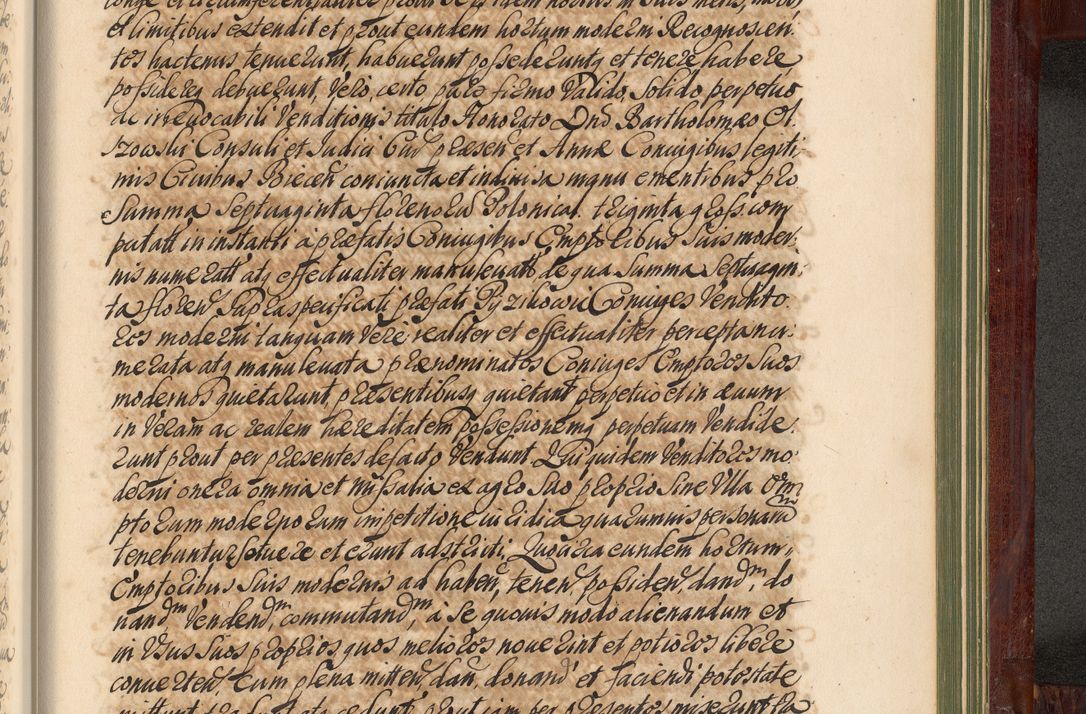 et limitibus extendit et prout eundem hortum moderni Recognoscen:
tes hactenus tenuerunt, habuerunt possederuntq et tenere habere
possidereq debuerunt, Vero, certo, puro firmo Valido, Solido perpetuo
ac irrevocabili Venditionis titulo Honorato Dnō Bartholomæo Ol
szowski Consuli et Judici præsen et Annæ Coniugibus legiti:
mis Civibus Biecen coniuncta et indivisa manu ementibus pro
Summa Septuaginta florenorū Polonical. triginta gross. com
putatt in instanti a præfatis Coniugibus Emptoribus Suis moder:
nis numeratt atq effectualiter manulevatt de qua Summa Septuagin:
ta floren Supraspecificati præfati Coniuges Vendito
res moderni tanquam Vere realiter et effectualiter percepta nu:
merata atq manulevata prænominatos Coniuges Emptores Suos
modernos quietarunt, præsentibusq quietant perpetuo et in ævum
in Veram ac realem hæreditatem possessionemq perpetuam Vendide:
runt prout per præsentes de facto Vendunt Qui quidem Venditores mo
derni onera omnia et missalia ex agro Suo proprio Sine Ulla Em
ptorum modernorum impetitione iuridica quarumvis personarū
tenebuntur solvere et erunt adstricti, Quoicirca eundem hortum,
Emptoribus Suis modernis ad haben, tenen, possiden, dandm, do
nandm Vendendm, commutandm, a Se quovis modo alienandum et
in Usus Suos proprios quos meliores noverint et potiores libere
converten, Cum plena mitten, dan, donand et faciendi potestate